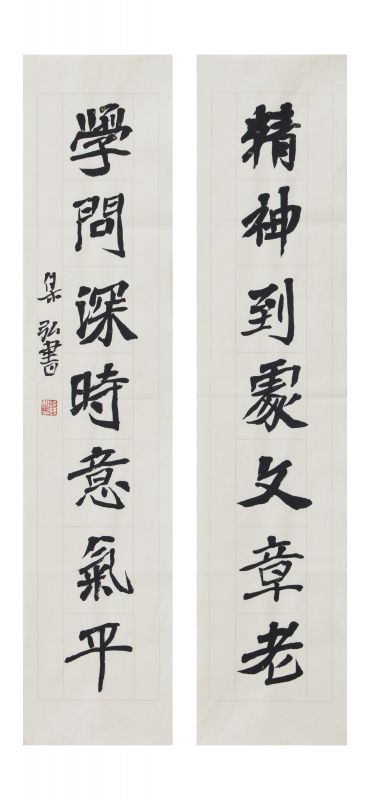 精神到處文章老
學問深時意氣平
集弘書